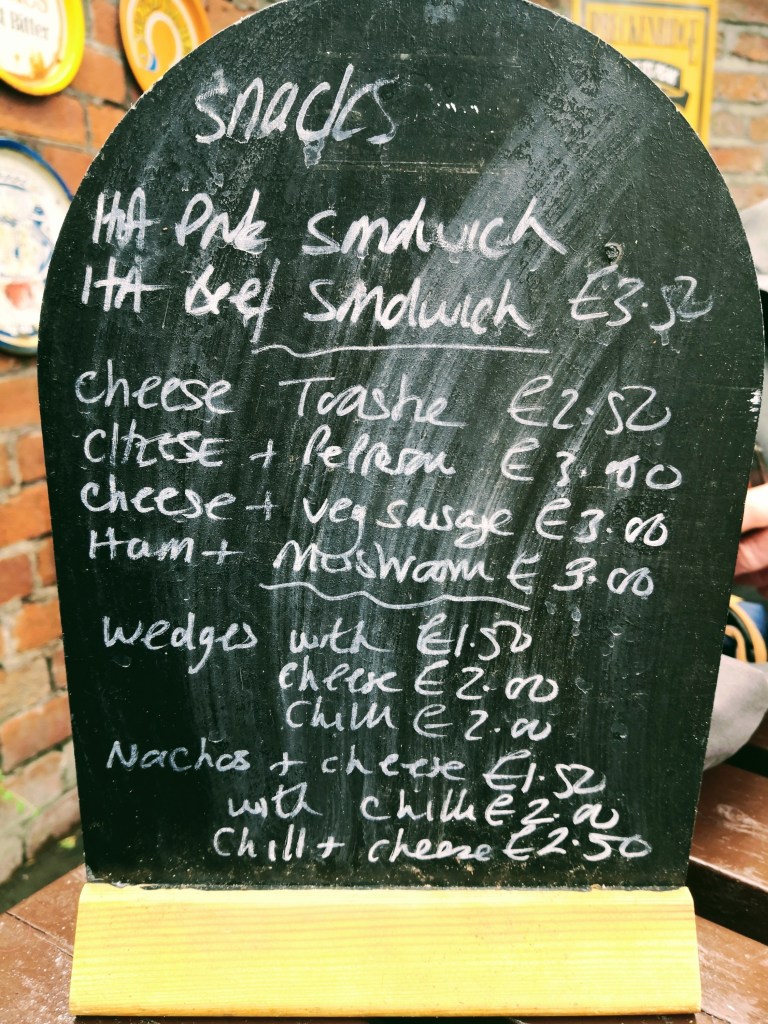 Bitter
BRECKENRIDGE
Snacks
Hot Pork Sandwich
Hot Beef Sandwich £3.50
Cheese Toastie £2.50
Cheese + Pepperoni £3.00
Cheese + veg sausage £3.00
Ham + Mushroom £3.00
Wedges with £1.50
cheese £2.00
Chilli £2.00
Nachos + cheese £1.50
with chilli £2.00
Chilli + cheese £2.50